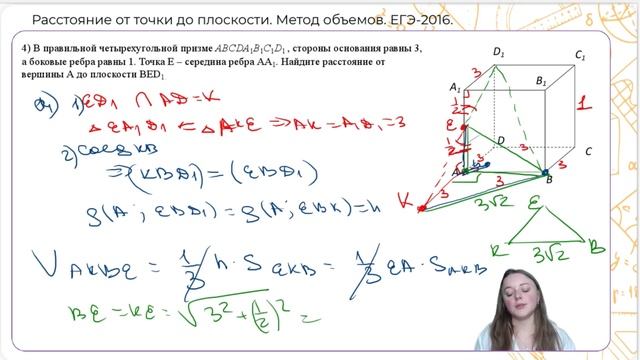 Расстояние от точки до плоскости. Метод объемов. ЕГЭ-2016.
4) В правильной четырехугольной призме ABCDA₁B₁C₁D₁ , стороны основания равны 3,
а боковые ребра равны 1. Точка E – середина ребра AA₁. Найдите расстояние от
вершины A до плоскости BED₁
1) ED₁ ∩ AD = K
△ EA₁D₁ = △ AKE ⇒ AK = A₁D₁ = 3
2) Соед KB
⇒ (KBD₁) = (EBD₁)
ρ(A; EBD₁) = ρ(A; EBK) = h
V AKBE = 1/3 h · S EKB = 1/3 EA · S AKB
BE = KE = √(3² + (1/2)²) =
D₁
C₁
3
A₁
B₁
1/2
1
E
1/2
D
3
C
A
3
3
B
K
3
3√2
E
K
3√2
B